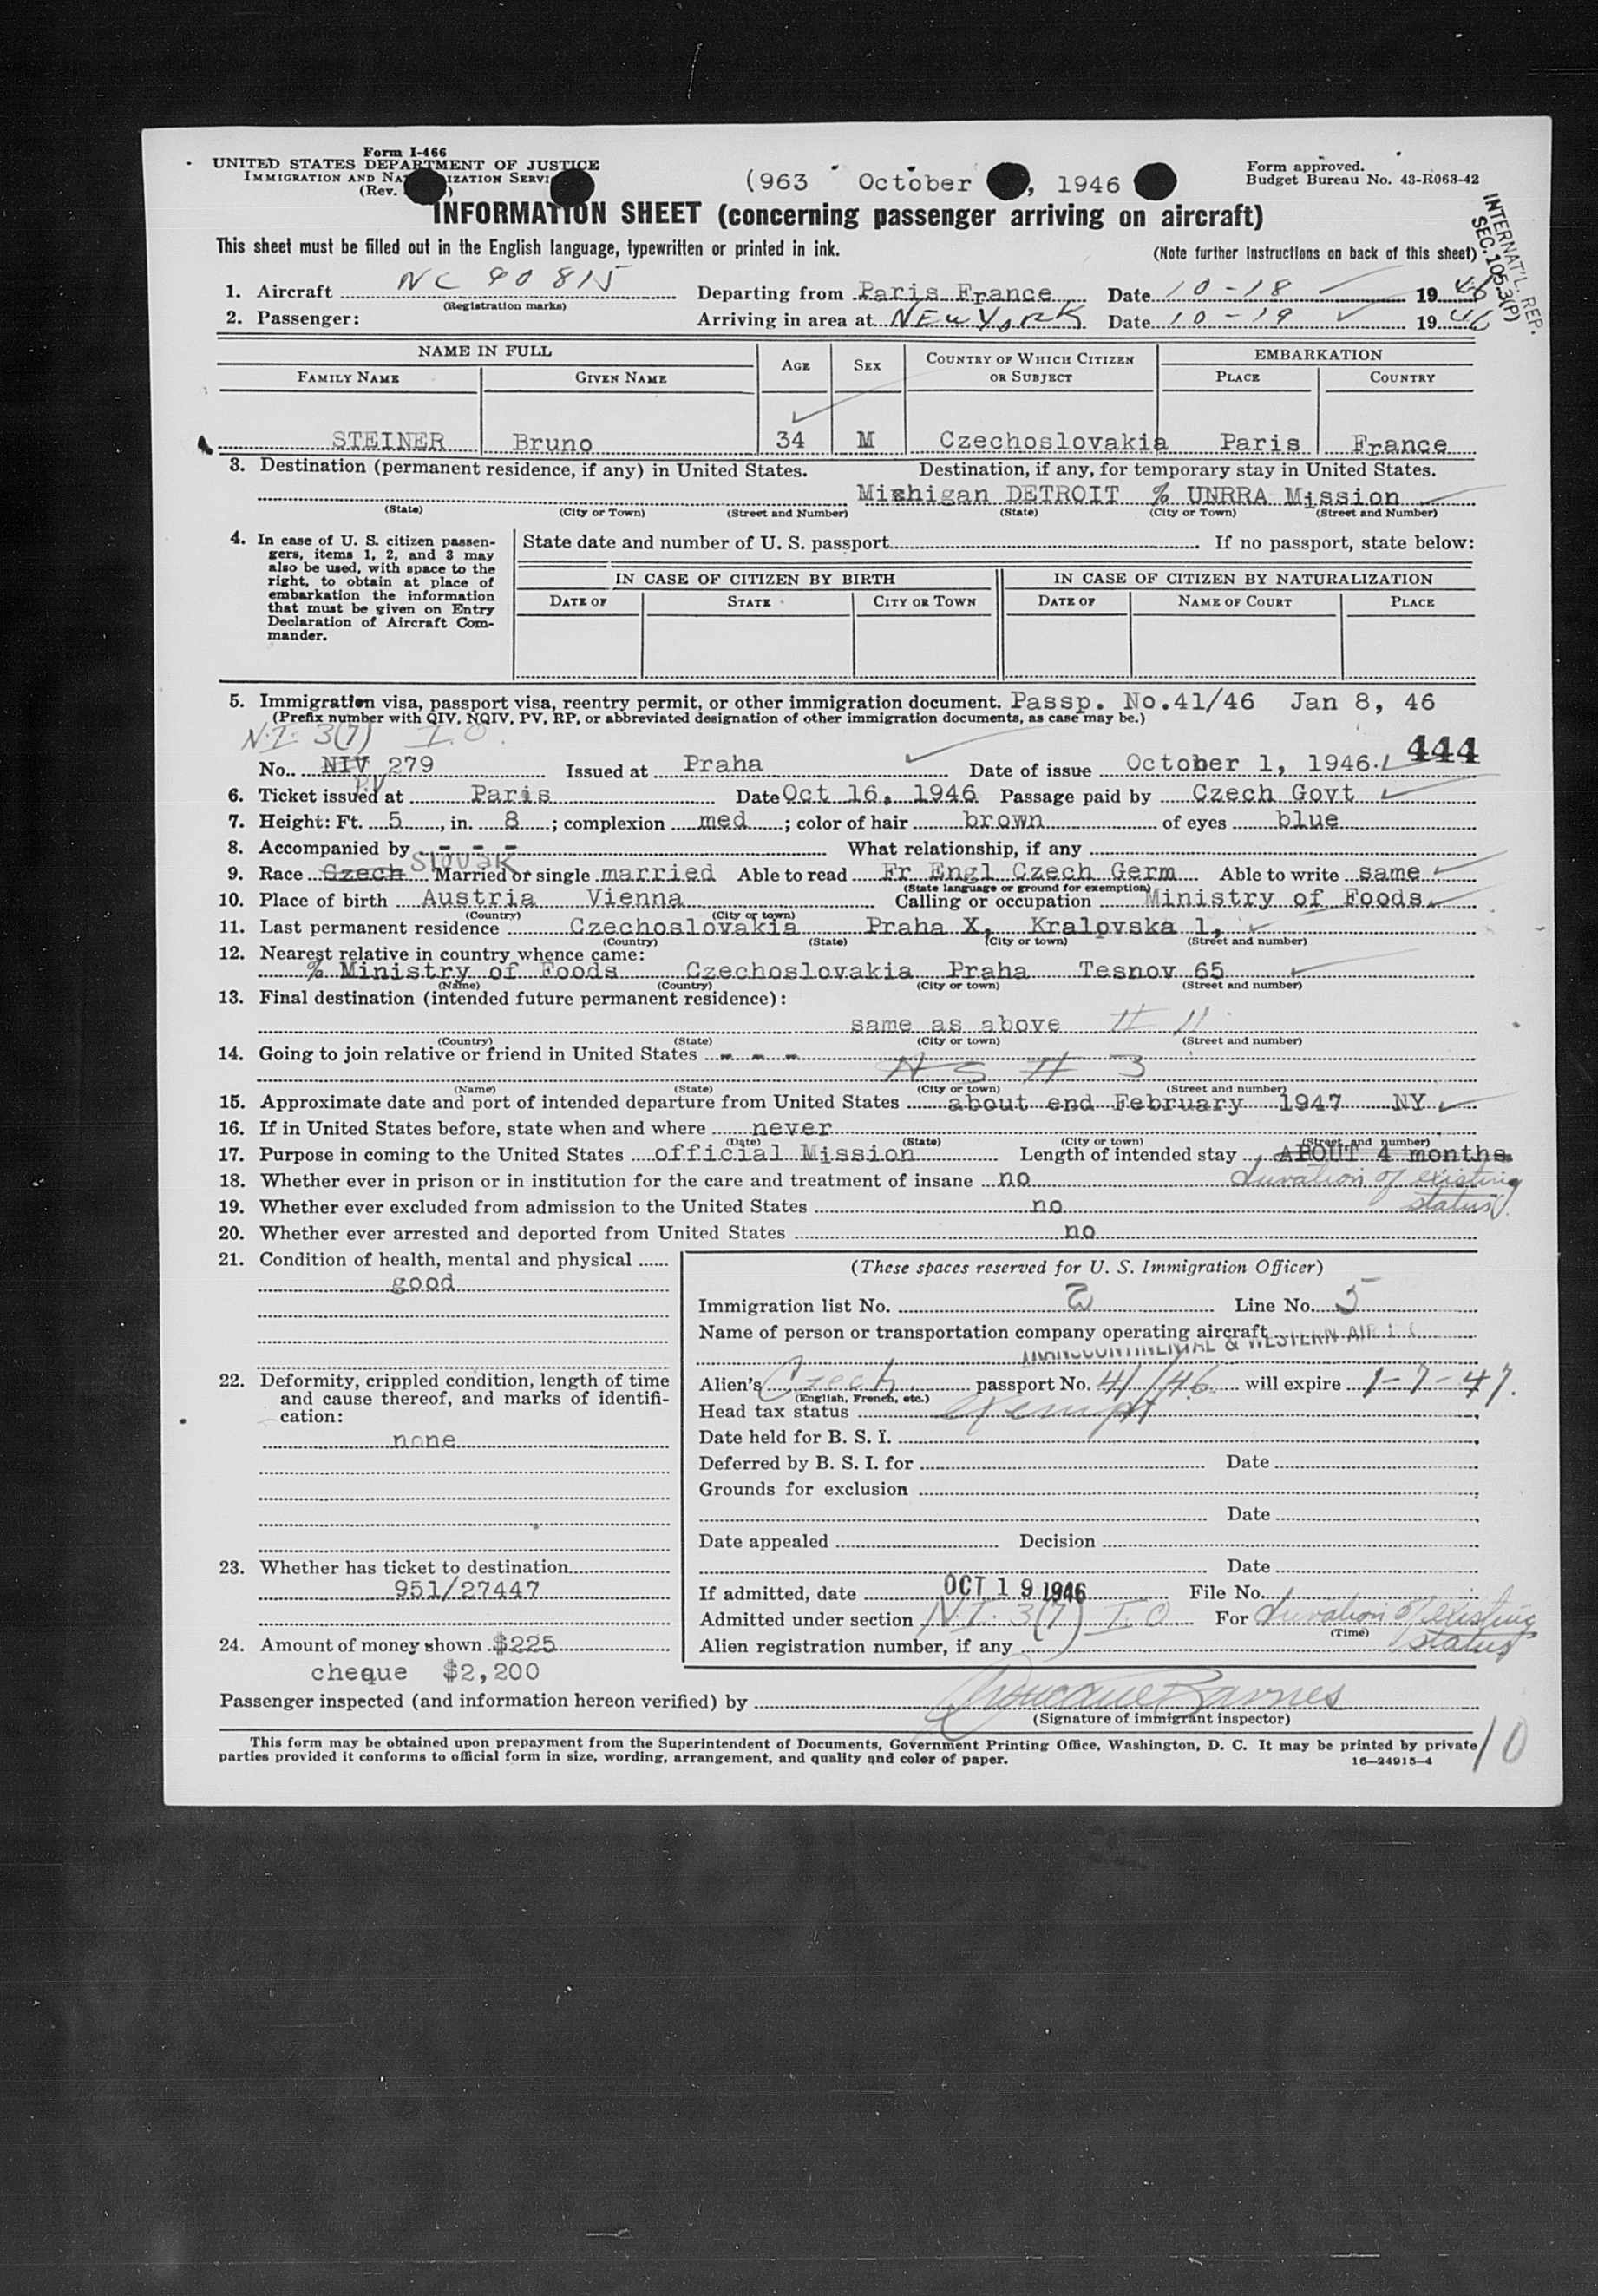 Form I-466
UNITED STATES DEPARTMENT OF JUSTICE
IMMIGRATION AND NA IZATION SERVI
(Rev. )
(963 October , 1946
Form approved.
Budget Bureau No. 43-R063-42
INFORMATION SHEET (concerning passenger arriving on aircraft)
INTERNAT'L. REP.
SEC. 1053(P)
This sheet must be filled out in the English language, typewritten or printed in ink.
(Note further instructions on back of this sheet)
1. Aircraft NC 90815 Departing from Paris France Date 10-18 1946
(Registration marks)
2. Passenger: Arriving in area at NEW YORK Date 10-19 1946
NAME IN FULL AGE SEX COUNTRY OF WHICH CITIZEN OR SUBJECT EMBARKATION
FAMILY NAME GIVEN NAME PLACE COUNTRY
STEINER Bruno 34 M Czechoslovakia Paris France
3. Destination (permanent residence, if any) in United States. Destination, if any, for temporary stay in United States.
Michigan DETROIT % UNRRA Mission
(State) (City or Town) (Street and Number) (State) (City or Town) (Street and Number)
4. In case of U. S. citizen passengers, items 1, 2, and 3 may also be used, with space to the right, to obtain at place of embarkation the information that must be given on Entry Declaration of Aircraft Commander.
State date and number of U. S. passport If no passport, state below:
IN CASE OF CITIZEN BY BIRTH IN CASE OF CITIZEN BY NATURALIZATION
DATE OF STATE CITY OR TOWN DATE OF NAME OF COURT PLACE
5. Immigration visa, passport visa, reentry permit, or other immigration document. Passp. No.41/46 Jan 8, 46
(Prefix number with QIV, NQIV, PV, RP, or abbreviated designation of other immigration documents, as case may be.)
N.I. 3(7) I.O.
444
No. NIV 279 Issued at Praha Date of issue October 1, 1946.
PV
6. Ticket issued at Paris Date Oct 16, 1946 Passage paid by Czech Govt
7. Height: Ft. 5, in. 8; complexion med; color of hair brown of eyes blue
8. Accompanied by - - - What relationship, if any
Slovak
9. Race Czech Married or single married Able to read Fr Engl Czech Germ Able to write same
(State language or ground for exemption)
10. Place of birth Austria Vienna Calling or occupation Ministry of Foods
(Country) (City or town)
11. Last permanent residence Czechoslovakia Praha X, Kralovska 1,
(Country) (State) (City or town) (Street and number)
12. Nearest relative in country whence came:
% Ministry of Foods Czechoslovakia Praha Tesnov 65
(Name) (Country) (City or town) (Street and number)
13. Final destination (intended future permanent residence):
same as above # 11
(Country) (State) (City or town) (Street and number)
14. Going to join relative or friend in United States - - -
AS # 3
(Name) (State) (City or town) (Street and number)
15. Approximate date and port of intended departure from United States about end February 1947 NY
16. If in United States before, state when and where never
(Date) (State) (City or town) (Street and number)
17. Purpose in coming to the United States official Mission Length of intended stay ABOUT 4 months
18. Whether ever in prison or in institution for the care and treatment of insane no duration of existing
19. Whether ever excluded from admission to the United States no status
20. Whether ever arrested and deported from United States no
21. Condition of health, mental and physical
good
(These spaces reserved for U. S. Immigration Officer)
Immigration list No. 2 Line No. 5
Name of person or transportation company operating aircraft
TRANSCONTINENTAL & WESTERN AIR
22. Deformity, crippled condition, length of time and cause thereof, and marks of identification:
none
Alien's Czech passport No. 41/46 will expire 1-7-47.
(English, French, etc.)
Head tax status exempt
Date held for B. S. I.
Deferred by B. S. I. for Date
Grounds for exclusion
Date
Date appealed Decision
Date
23. Whether has ticket to destination
951/27447
If admitted, date OCT 19 1946 File No.
Admitted under section N.I. 3(7) I.O For duration of existing status
(Time)
24. Amount of money shown $225
cheque $2,200
Alien registration number, if any
Passenger inspected (and information hereon verified) by Barnes
(Signature of immigrant inspector)
This form may be obtained upon prepayment from the Superintendent of Documents, Government Printing Office, Washington, D. C. It may be printed by private
parties provided it conforms to official form in size, wording, arrangement, and quality and color of paper.
16—24915-4
10